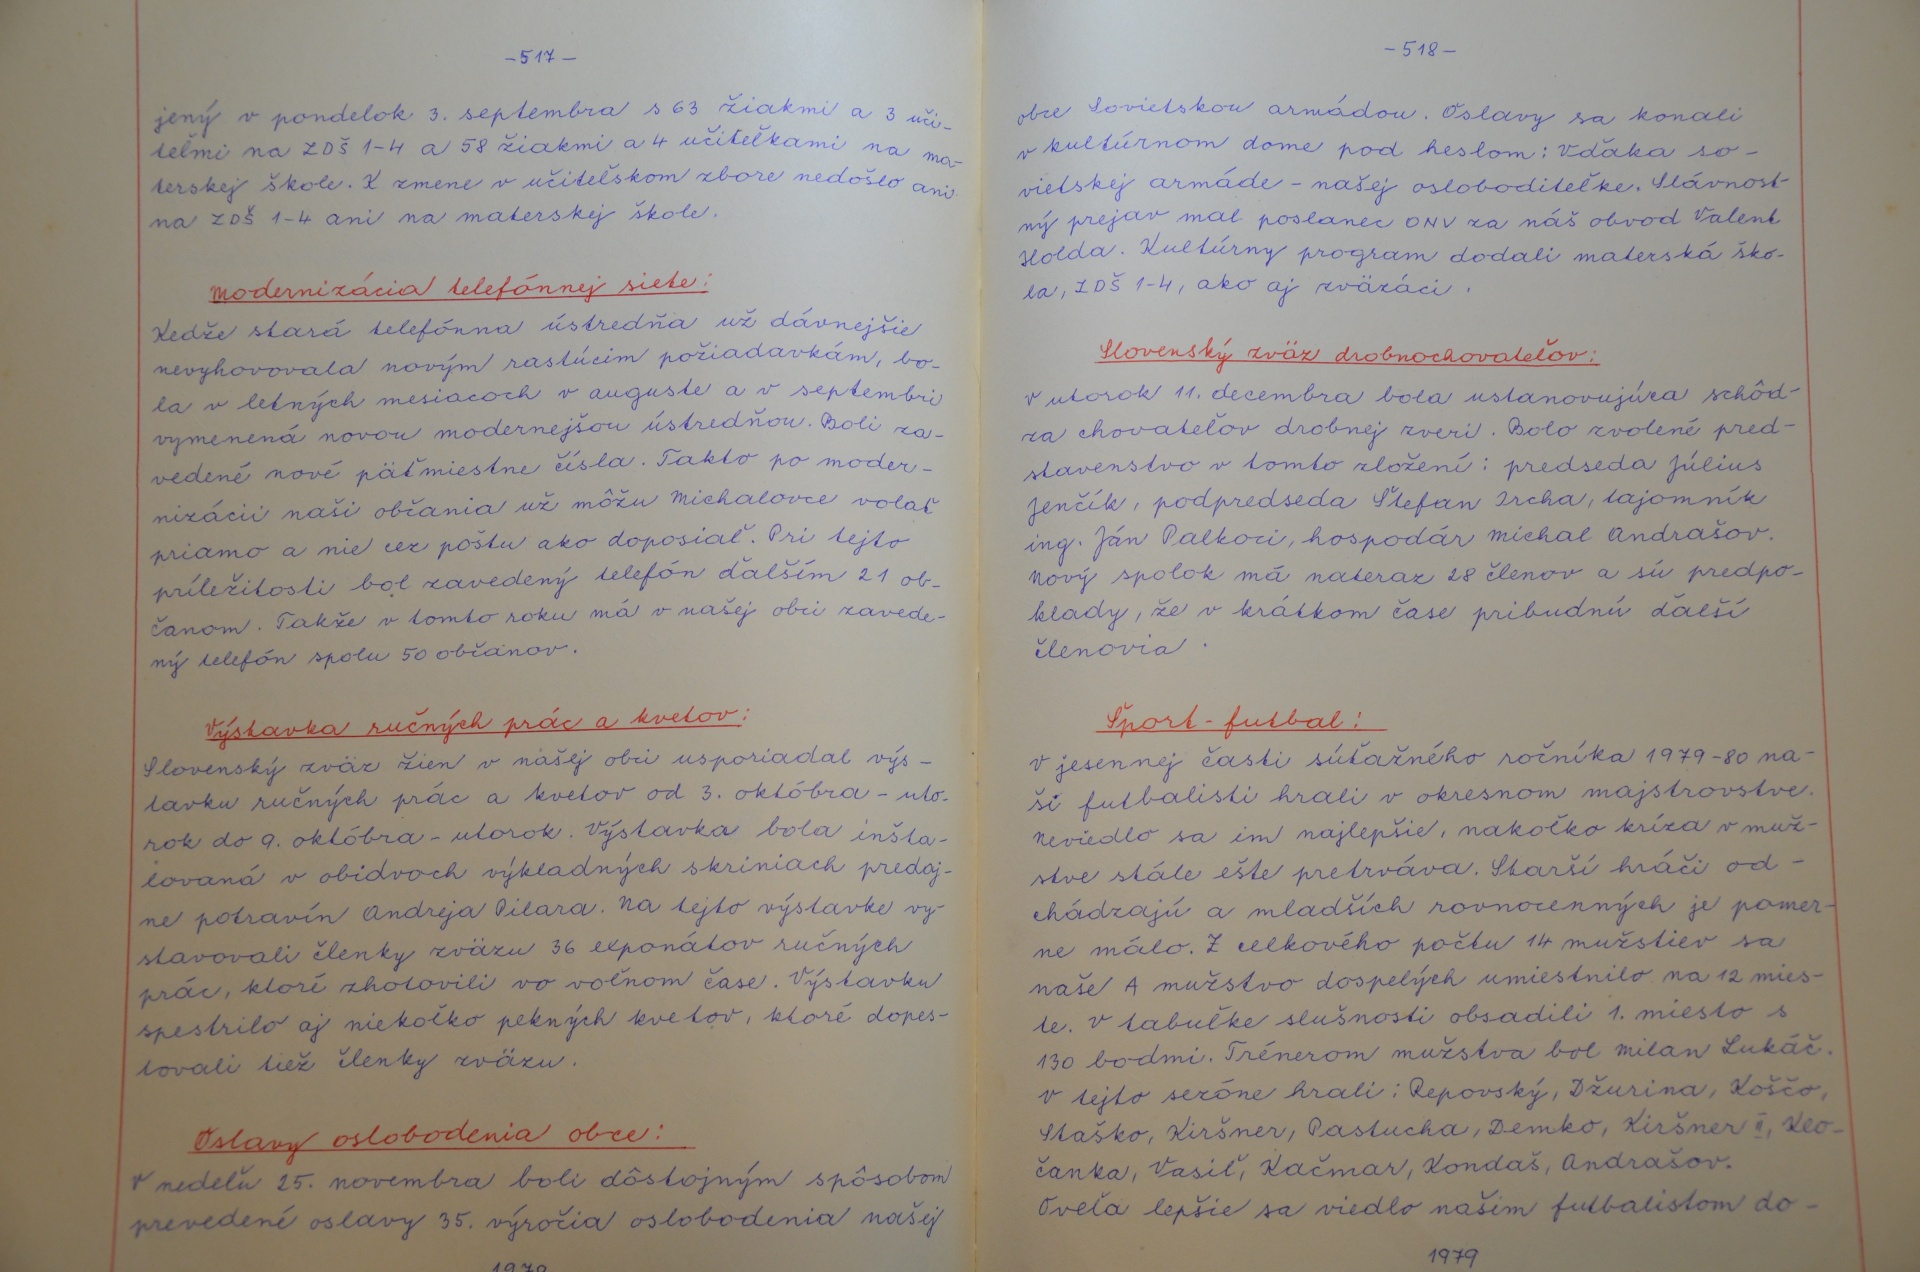 -517-
jený v pondelok 3. septembra s 63 žiakmi a 3 uči-
teľmi na ZDŠ 1-4 a 58 žiakmi a 4 učiteľkami na ma-
terskej škole. K zmene v učiteľskom zbore nedošlo ani
na ZDŠ 1-4 ani na materskej škole.
Modernizácia telefónnej siete:
Kedže stará telefónna ústredňa už dávnejšie
nevyhovovala novým rastúcim požiadavkám, bo-
la v letných mesiacoch v auguste a v septembri
vymenená novou modernejšou ústredňou. Boli za-
vedené nové päťmiestne čísla. Takto po moder-
nizácii naši občania už môžu Michalovce volať
priamo a nie cez poštu ako doposiaľ. Pri tejto
príležitosti bol zavedený telefón ďalším 21 ob-
čanom. Takže v tomto roku má v našej obci zavede-
ný telefón spolu 50 občanov.
Výstavka ručných prác a kvetov:
Slovenský zväz žien v našej obci usporiadal výs-
tavku ručných prác a kvetov od 3. októbra - uto-
rok do 9. októbra - utorok. Výstavka bola inšta-
lovaná v obidvoch výkladných skriniach predaj-
ne potravín Andreja Pilara. Na tejto výstavke vy-
stavovali členky zväzu 36 exponátov ručných
prác, ktoré zhotovili vo voľnom čase. Výstavku
spestrilo aj niekoľko pekných kvetov, ktoré dopes-
tovali tiež členky zväzu.
Oslavy oslobodenia obce:
V nedeľu 25. novembra boli dôstojným spôsobom
prevedené oslavy 35. výročia oslobodenia našej
1979
-518-
obce Sovietskou armádou. Oslavy sa konali
v kultúrnom dome pod heslom: Vďaka so-
vietskej armáde - našej osloboditeľke. Slávnost-
ný prejav mal poslanec ONV za náš obvod Valent
Holda. Kultúrny program dodali materská ško-
la, ZDŠ 1-4, ako aj zväzáci.
Slovenský zväz drobnochovateľov:
V utorok 11. decembra bola ustanovujúca schôd-
za chovateľov drobnej zveri. Bolo zvolené pred-
stavenstvo v tomto zložení: predseda Július
Jenčík, podpredseda Štefan Ircha, tajomník
ing. Ján Palkoci, hospodár Michal Andrašov.
Nový spolok má nateraz 28 členov a sú predpo-
klady, že v krátkom čase pribudnú ďalší
členovia.
Šport - futbal:
V jesennej časti súťažného ročníka 1979-80 na-
ši futbalisti hrali v okresnom majstrovstve.
Neviedlo sa im najlepšie, nakoľko kríza v muž-
stve stále ešte pretrváva. Starší hráči od-
chádzajú a mladších rovnocenných je pomer-
ne málo. Z celkového počtu 14 mužstiev sa
naše A mužstvo dospelých umiestnilo na 12 mies-
te. V tabuľke slušnosti obsadili 1. miesto s
130 bodmi. Trénerom mužstva bol Milan Lukáč.
V tejto sezóne hrali: Repovský, Džurina, Koščo,
Staško, Kiršner, Pastucha, Demko, Kiršner II, Keo-
čanka, Vasiľ, Kačmar, Kondaš, Andrašov.
Oveľa lepšie sa viedlo našim futbalistom do-
1979